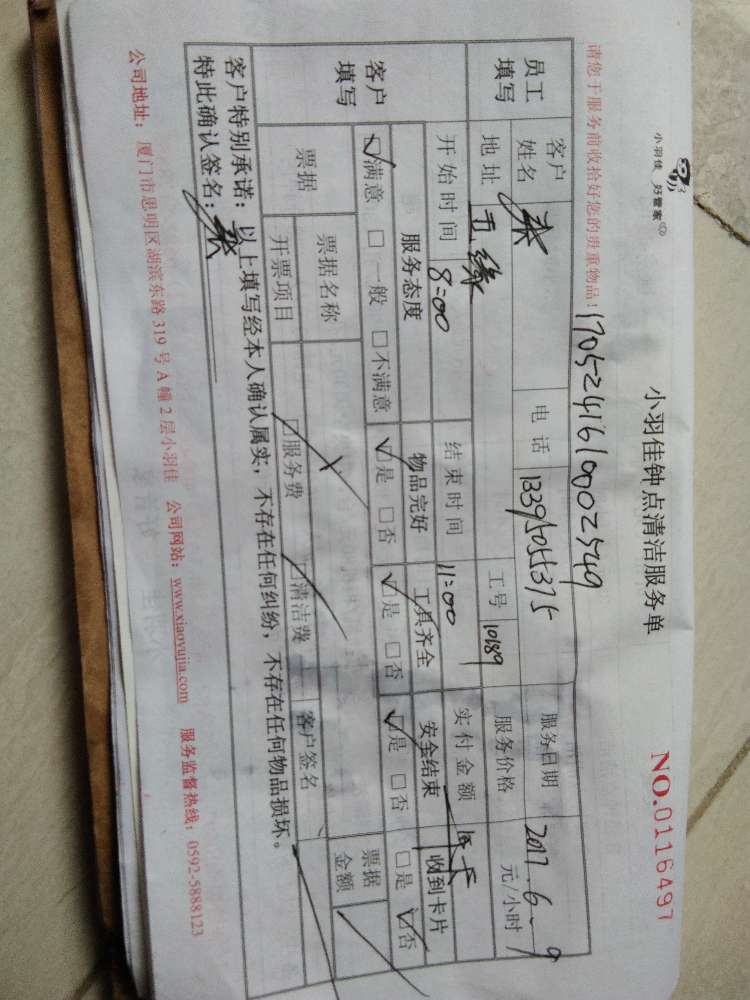 小羽佳 好管家
小羽佳钟点清洁服务单
NO.0116497
请您于服务前收拾好您的贵重物品！
1705241610002549
员工填写
客户姓名 张 电话 13395055375 服务日期 2017.6.9
地址 五缘 工号 10189 服务价格 元/小时
客户填写
开始时间 8:00 结束时间 11:00 实付金额
服务态度 物品完好 工具齐全 安全结束 收到卡片
☑满意 □一般 □不满意 ☑是 □否 ☑是 □否 ☑是 □否 □是 ☑否
票据 票据名称 票据金额
开票项目 □服务费 □清洁费 客户签名
客户特别承诺：以上填写经本人确认属实，不存在任何纠纷，不存在任何物品损坏。
特此确认签名：张
公司地址：厦门市思明区湖滨东路 319 号 A 幢 2 层小羽佳 公司网站：www.xiaoyujia.com 服务监督热线：0592-5888123